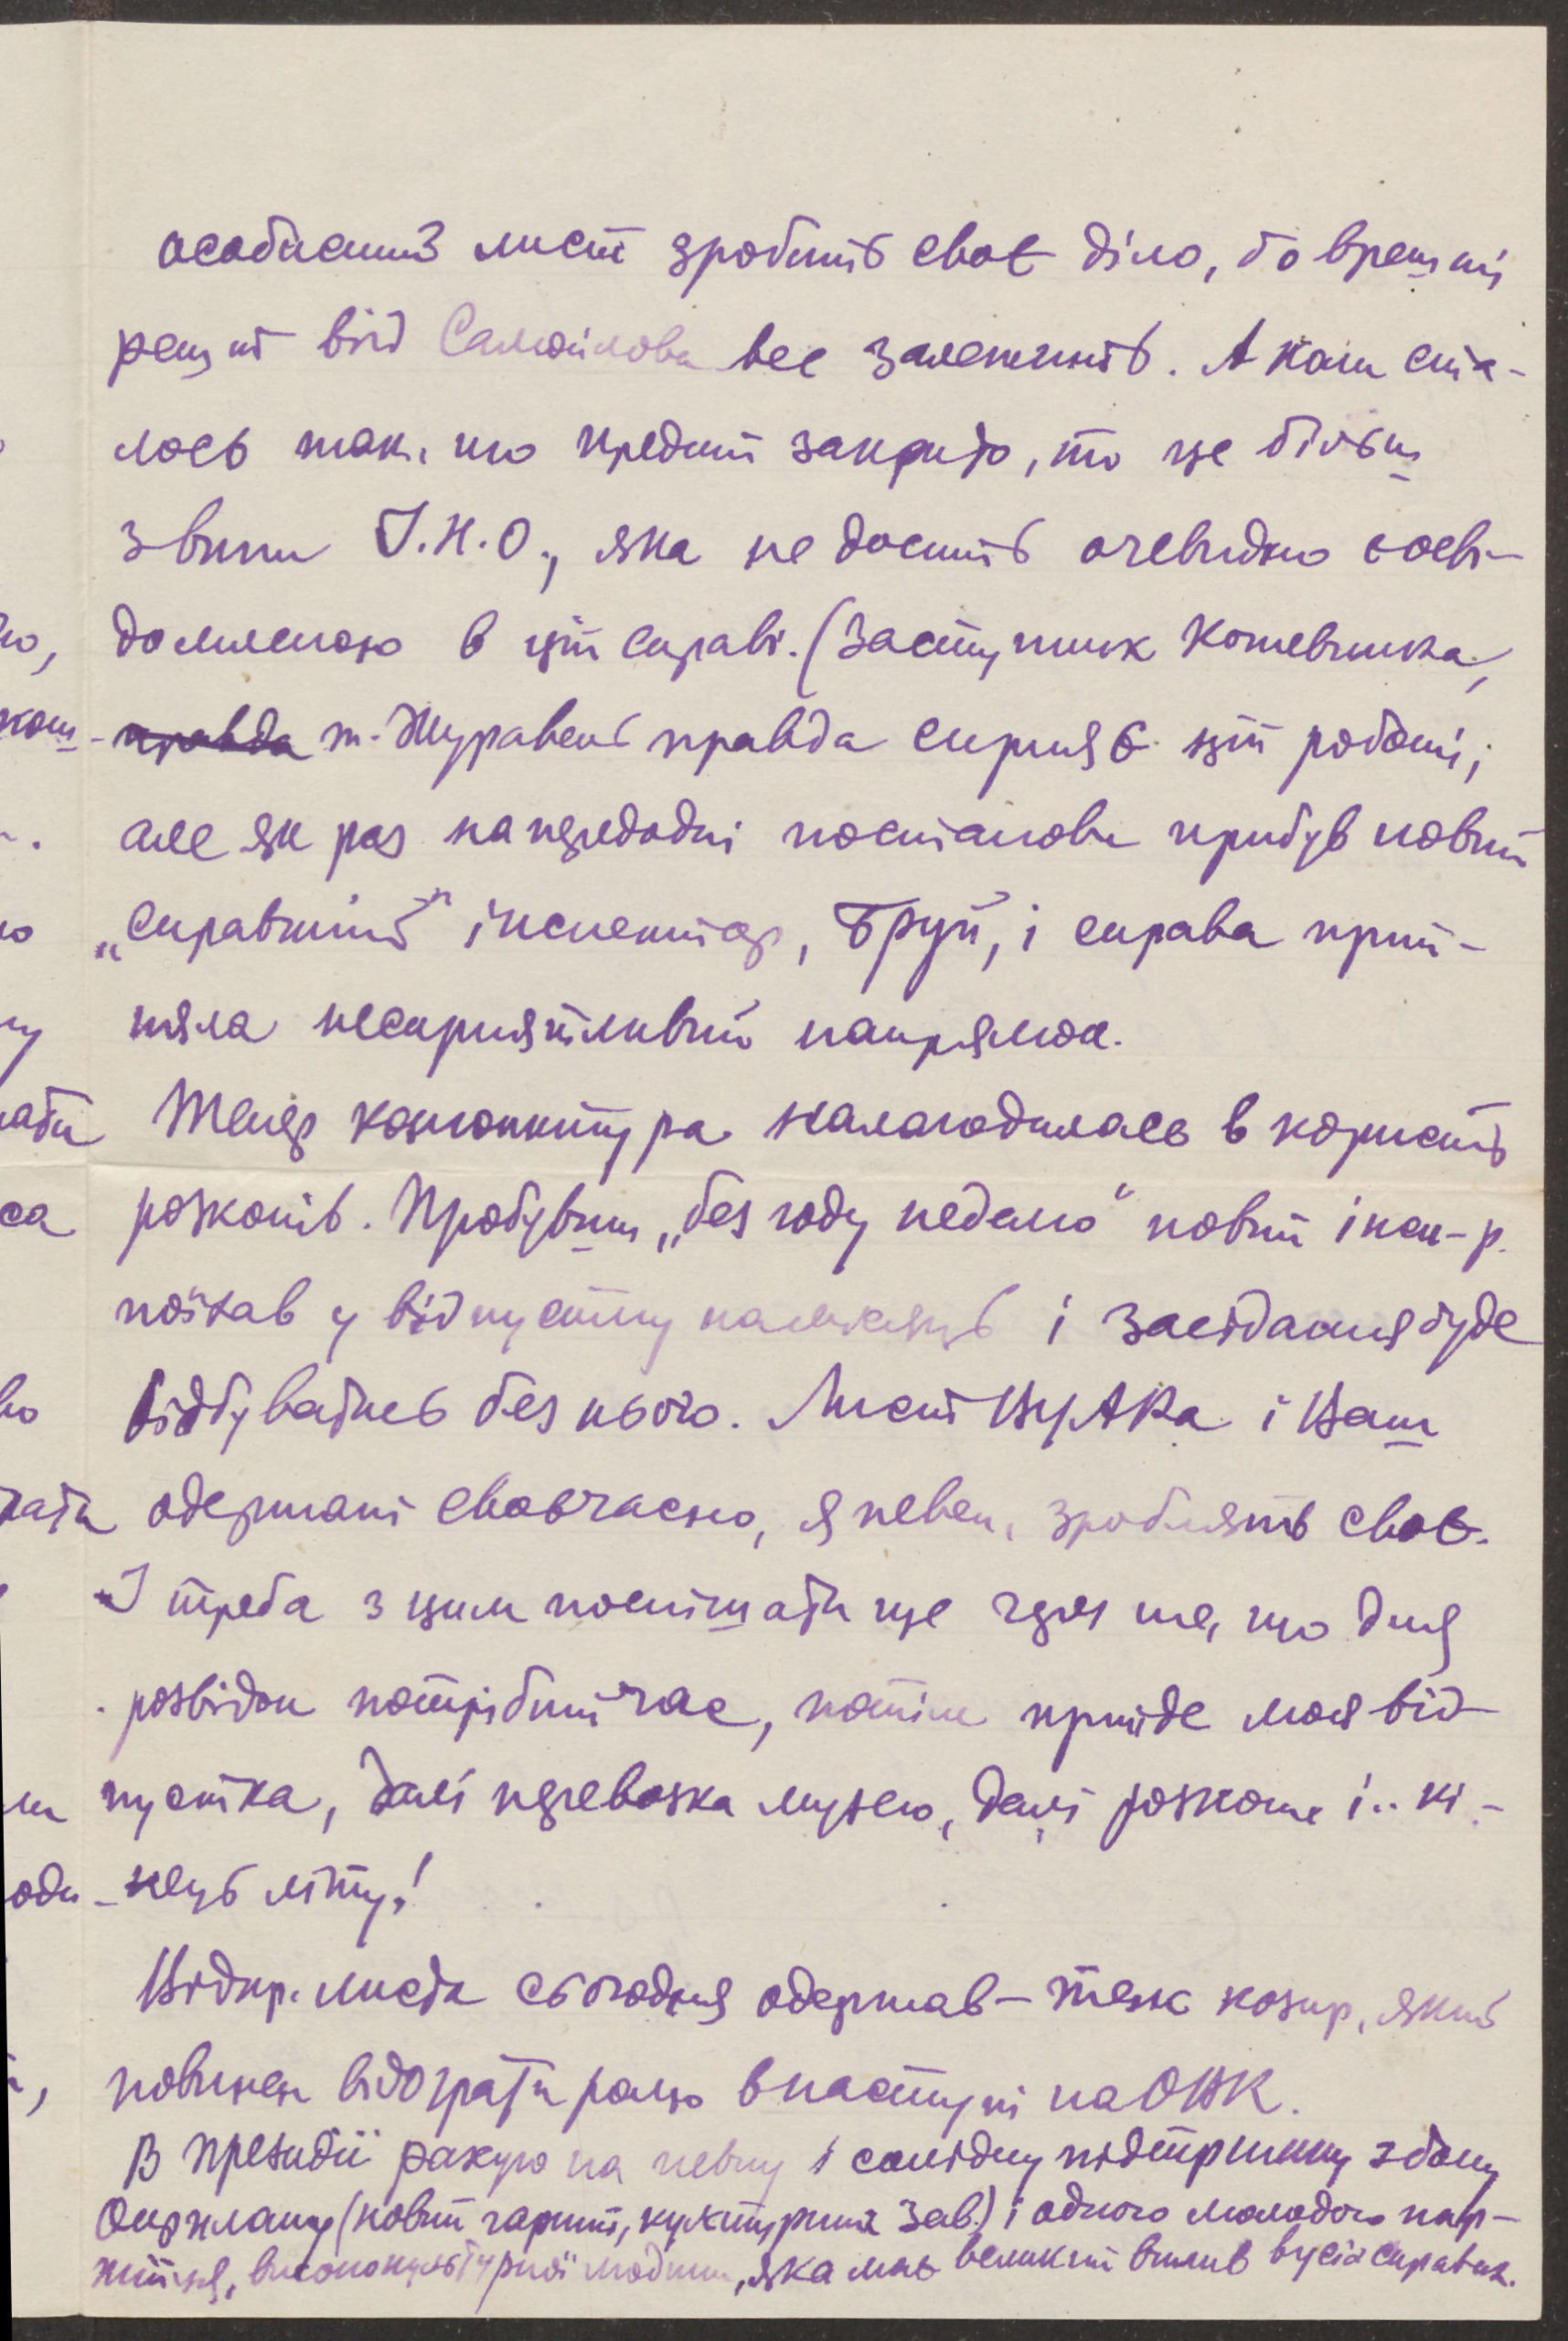 особистий лист зробить своє діло, бо врешті
решт від Самойлова все залежить. А коли ста-
лось так, що кредит закрито, то це більш
з вини І.Н.О., яка не досить очевидно осві-
домленою в цій справі. (Заступник Кошевника,
ко, правда т. Журавель правда сприяє цій роботі;
але як раз напередодні постанови прибув новий
„справжній" інспектор, Бруй, і справа прий-
няла несприятливий напрямок.
Тепер кон'юнктура налагодилась в користь
розкопів. Пробувши „без году неделю" новий інсп-р.
поїхав у відпустку на місяць і засідання буде
відбуватись без нього. Лист ВУАКа і Ваш
одержані своєчасно, я певен, зроблять своє.
І треба з цим поспішати ще через те, що для
розвідок потрібний час, потім прийде моя від-
пустка, далі перевозка музею, далі розкопи і.. кі-
нець літу!
Відкр. листа сьогодня одержав – теж козир, який
повинен відограти ролю в наступі на ОВК.
В президії рахую на певну і солідну підтримку з боку
Окрплану (новий гарний, культурний зав.) і одного молодого пар-
тійця, висококультурної людини, яка має великий вплив в усіх справах.